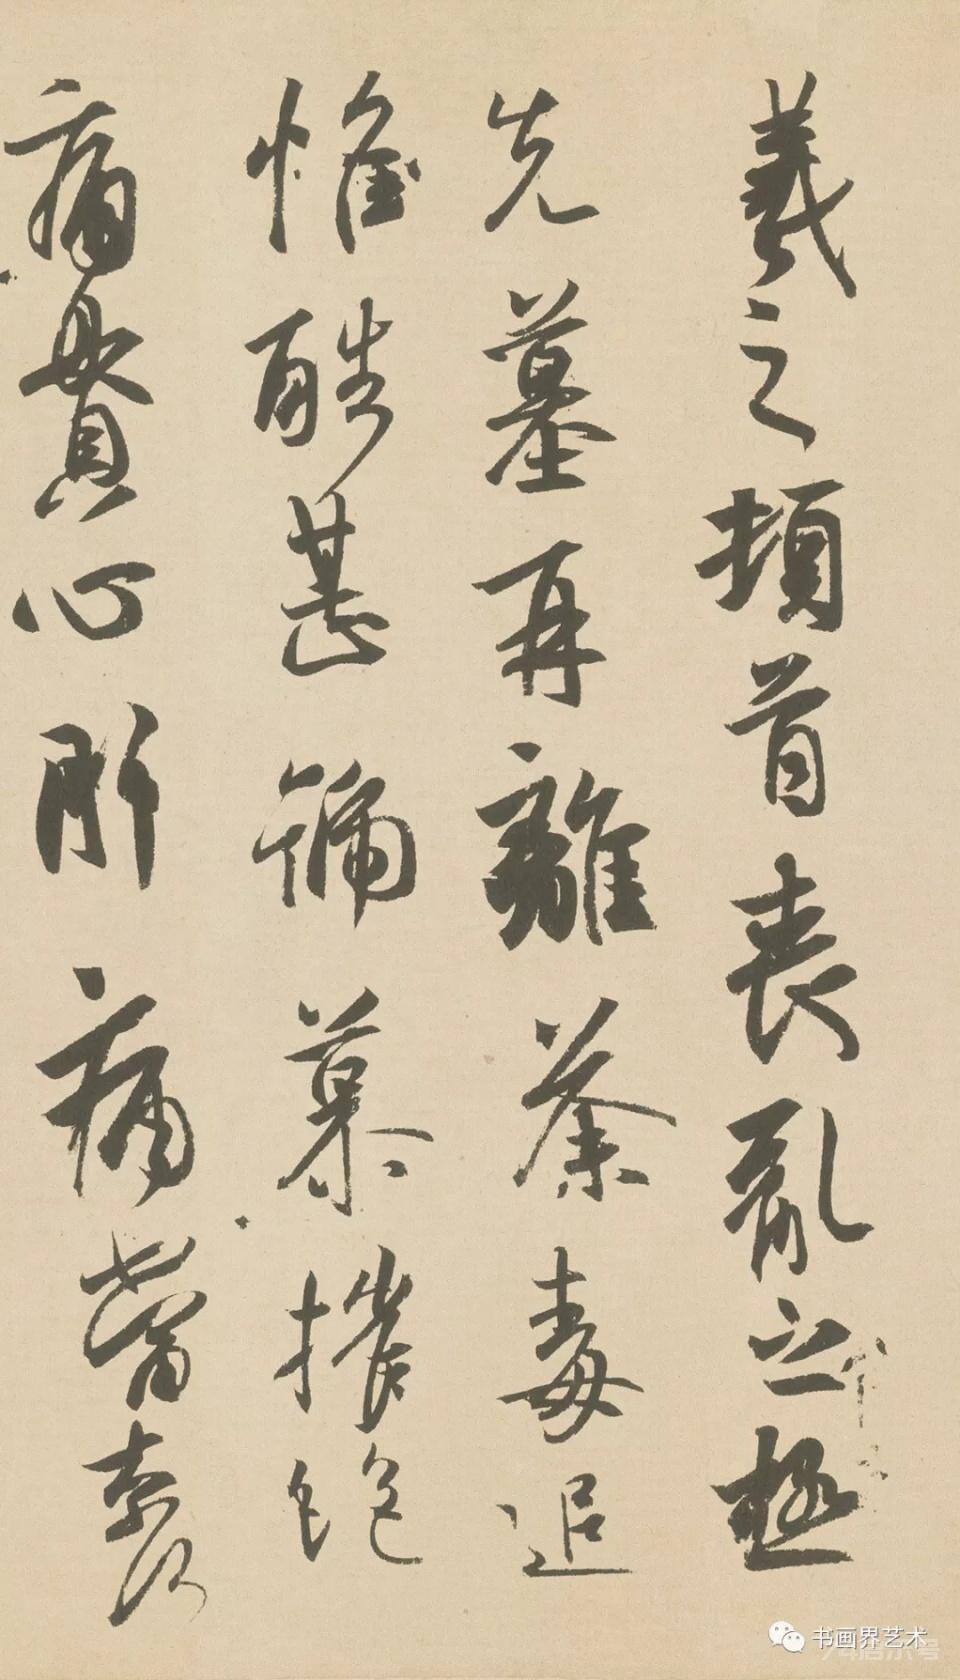 羲之頓首喪亂之極
先墓再離荼毒追
惟酷甚號慕摧絕
痛貫心肝痛當奈何
书画界艺术